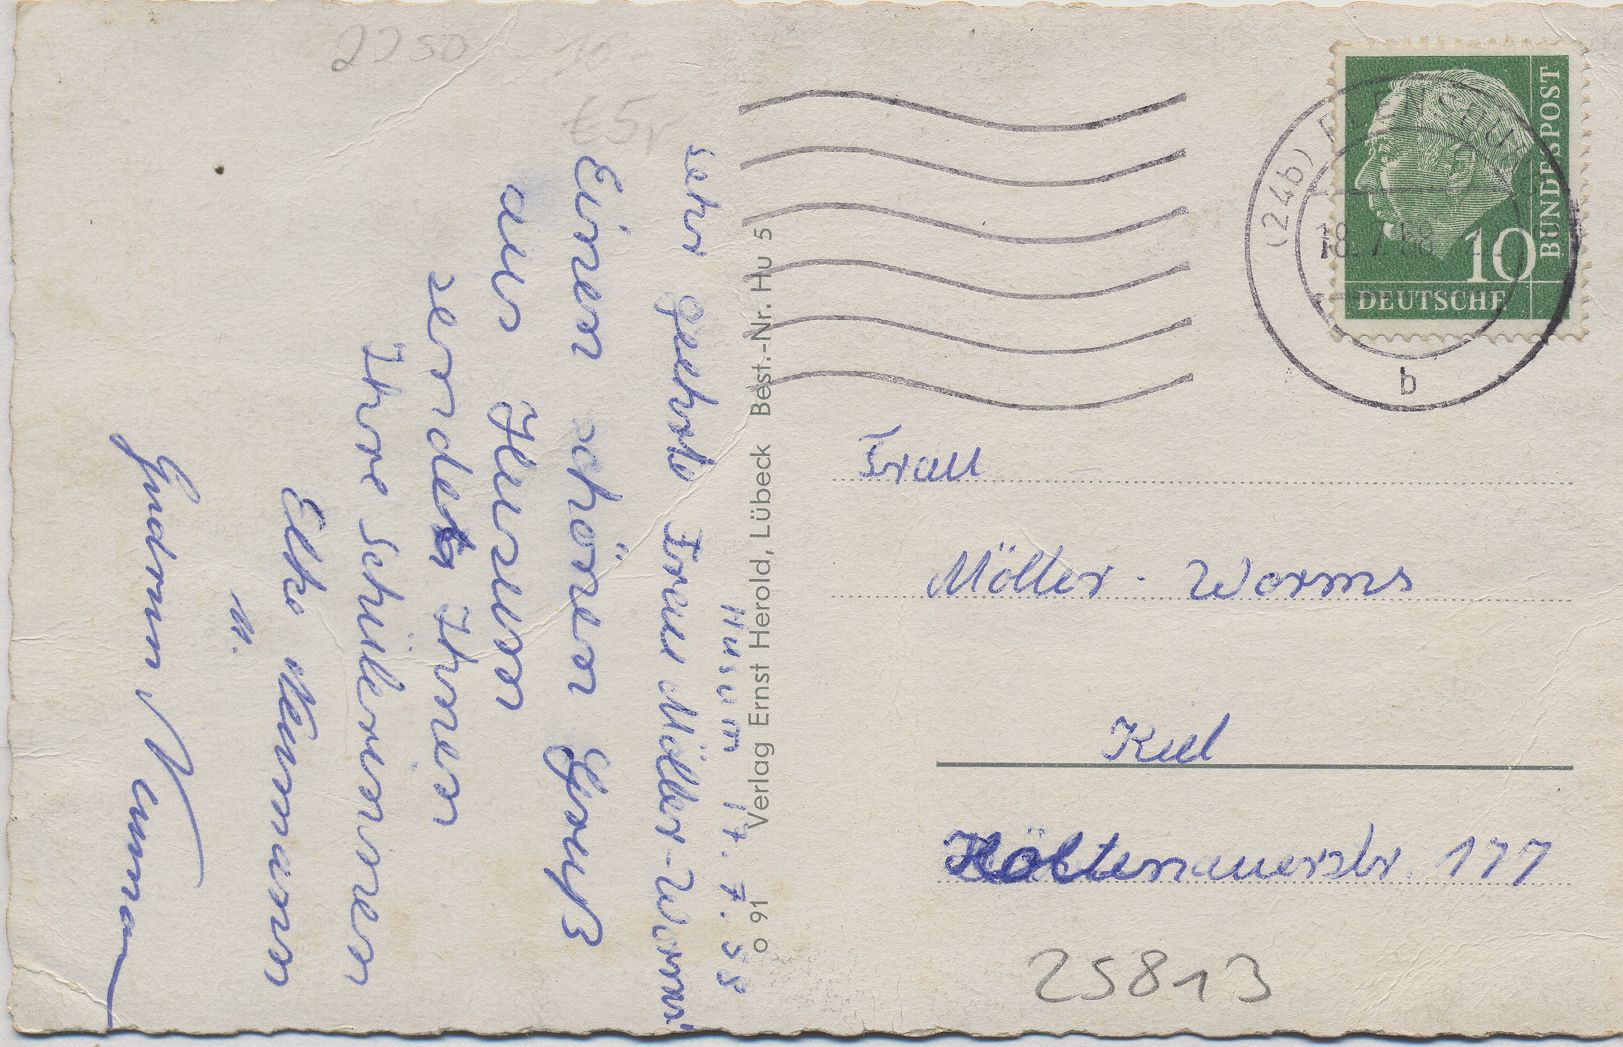 2250
(24b) FLENSBURG
18.7.58
b
BUNDESPOST
10
DEUTSCHE
Husum 17.7.58
sehr geehrte Frau Möller-Worms
Einen schönen Gruß
aus Husum
sendet Ihnen
Ihre Schülerinnen
Elke Neumann
u.
Gudrun Neumann
o 91 Verlag Ernst Herold, Lübeck Best.-Nr. Hu 5
Frau
Möller-Worms
Kiel
Holtenauerstr. 177
25813